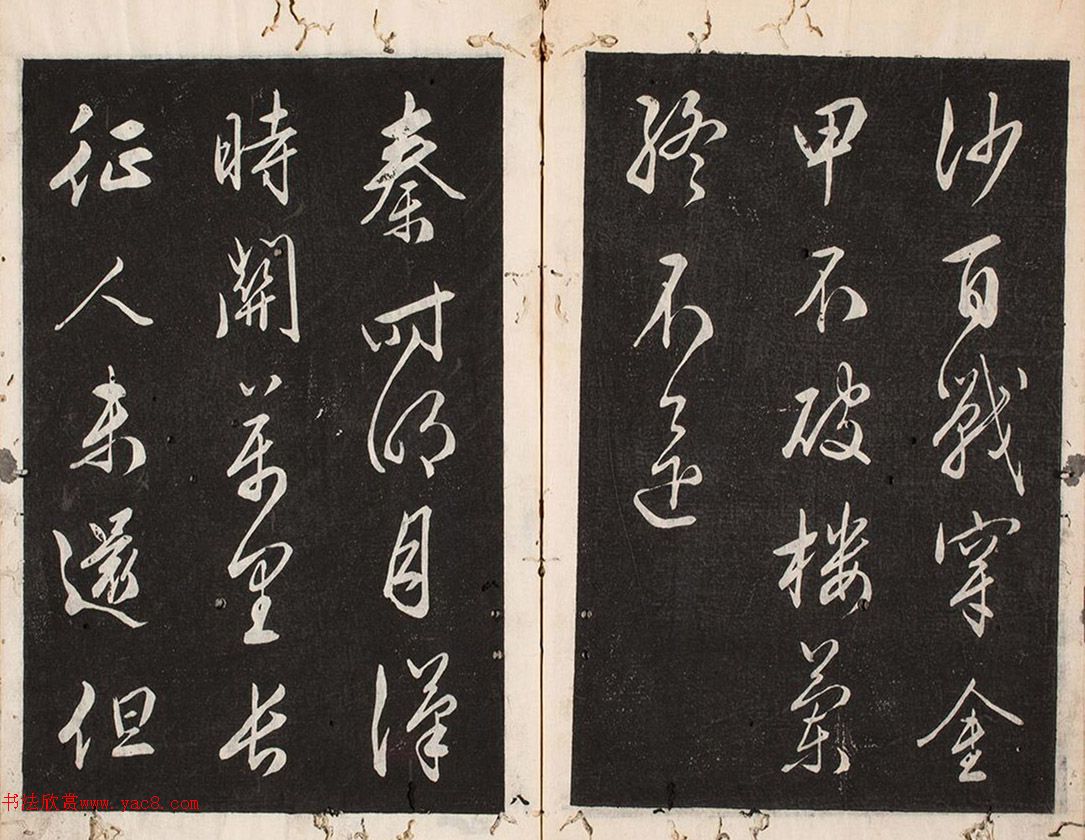 沙百戰穿金
甲不破樓蘭
終不還
秦時明月漢
時關萬里長
征人未還但
八
书法欣赏www.yac8.com